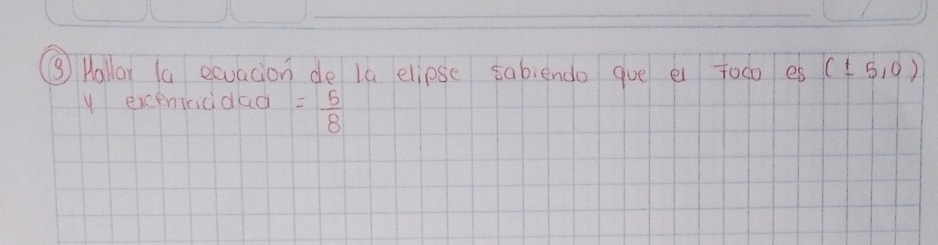 ③ Hallar la ecuación de la elipse sabiendo que el foco es (± 5,0)
y excentricidad = 5/8